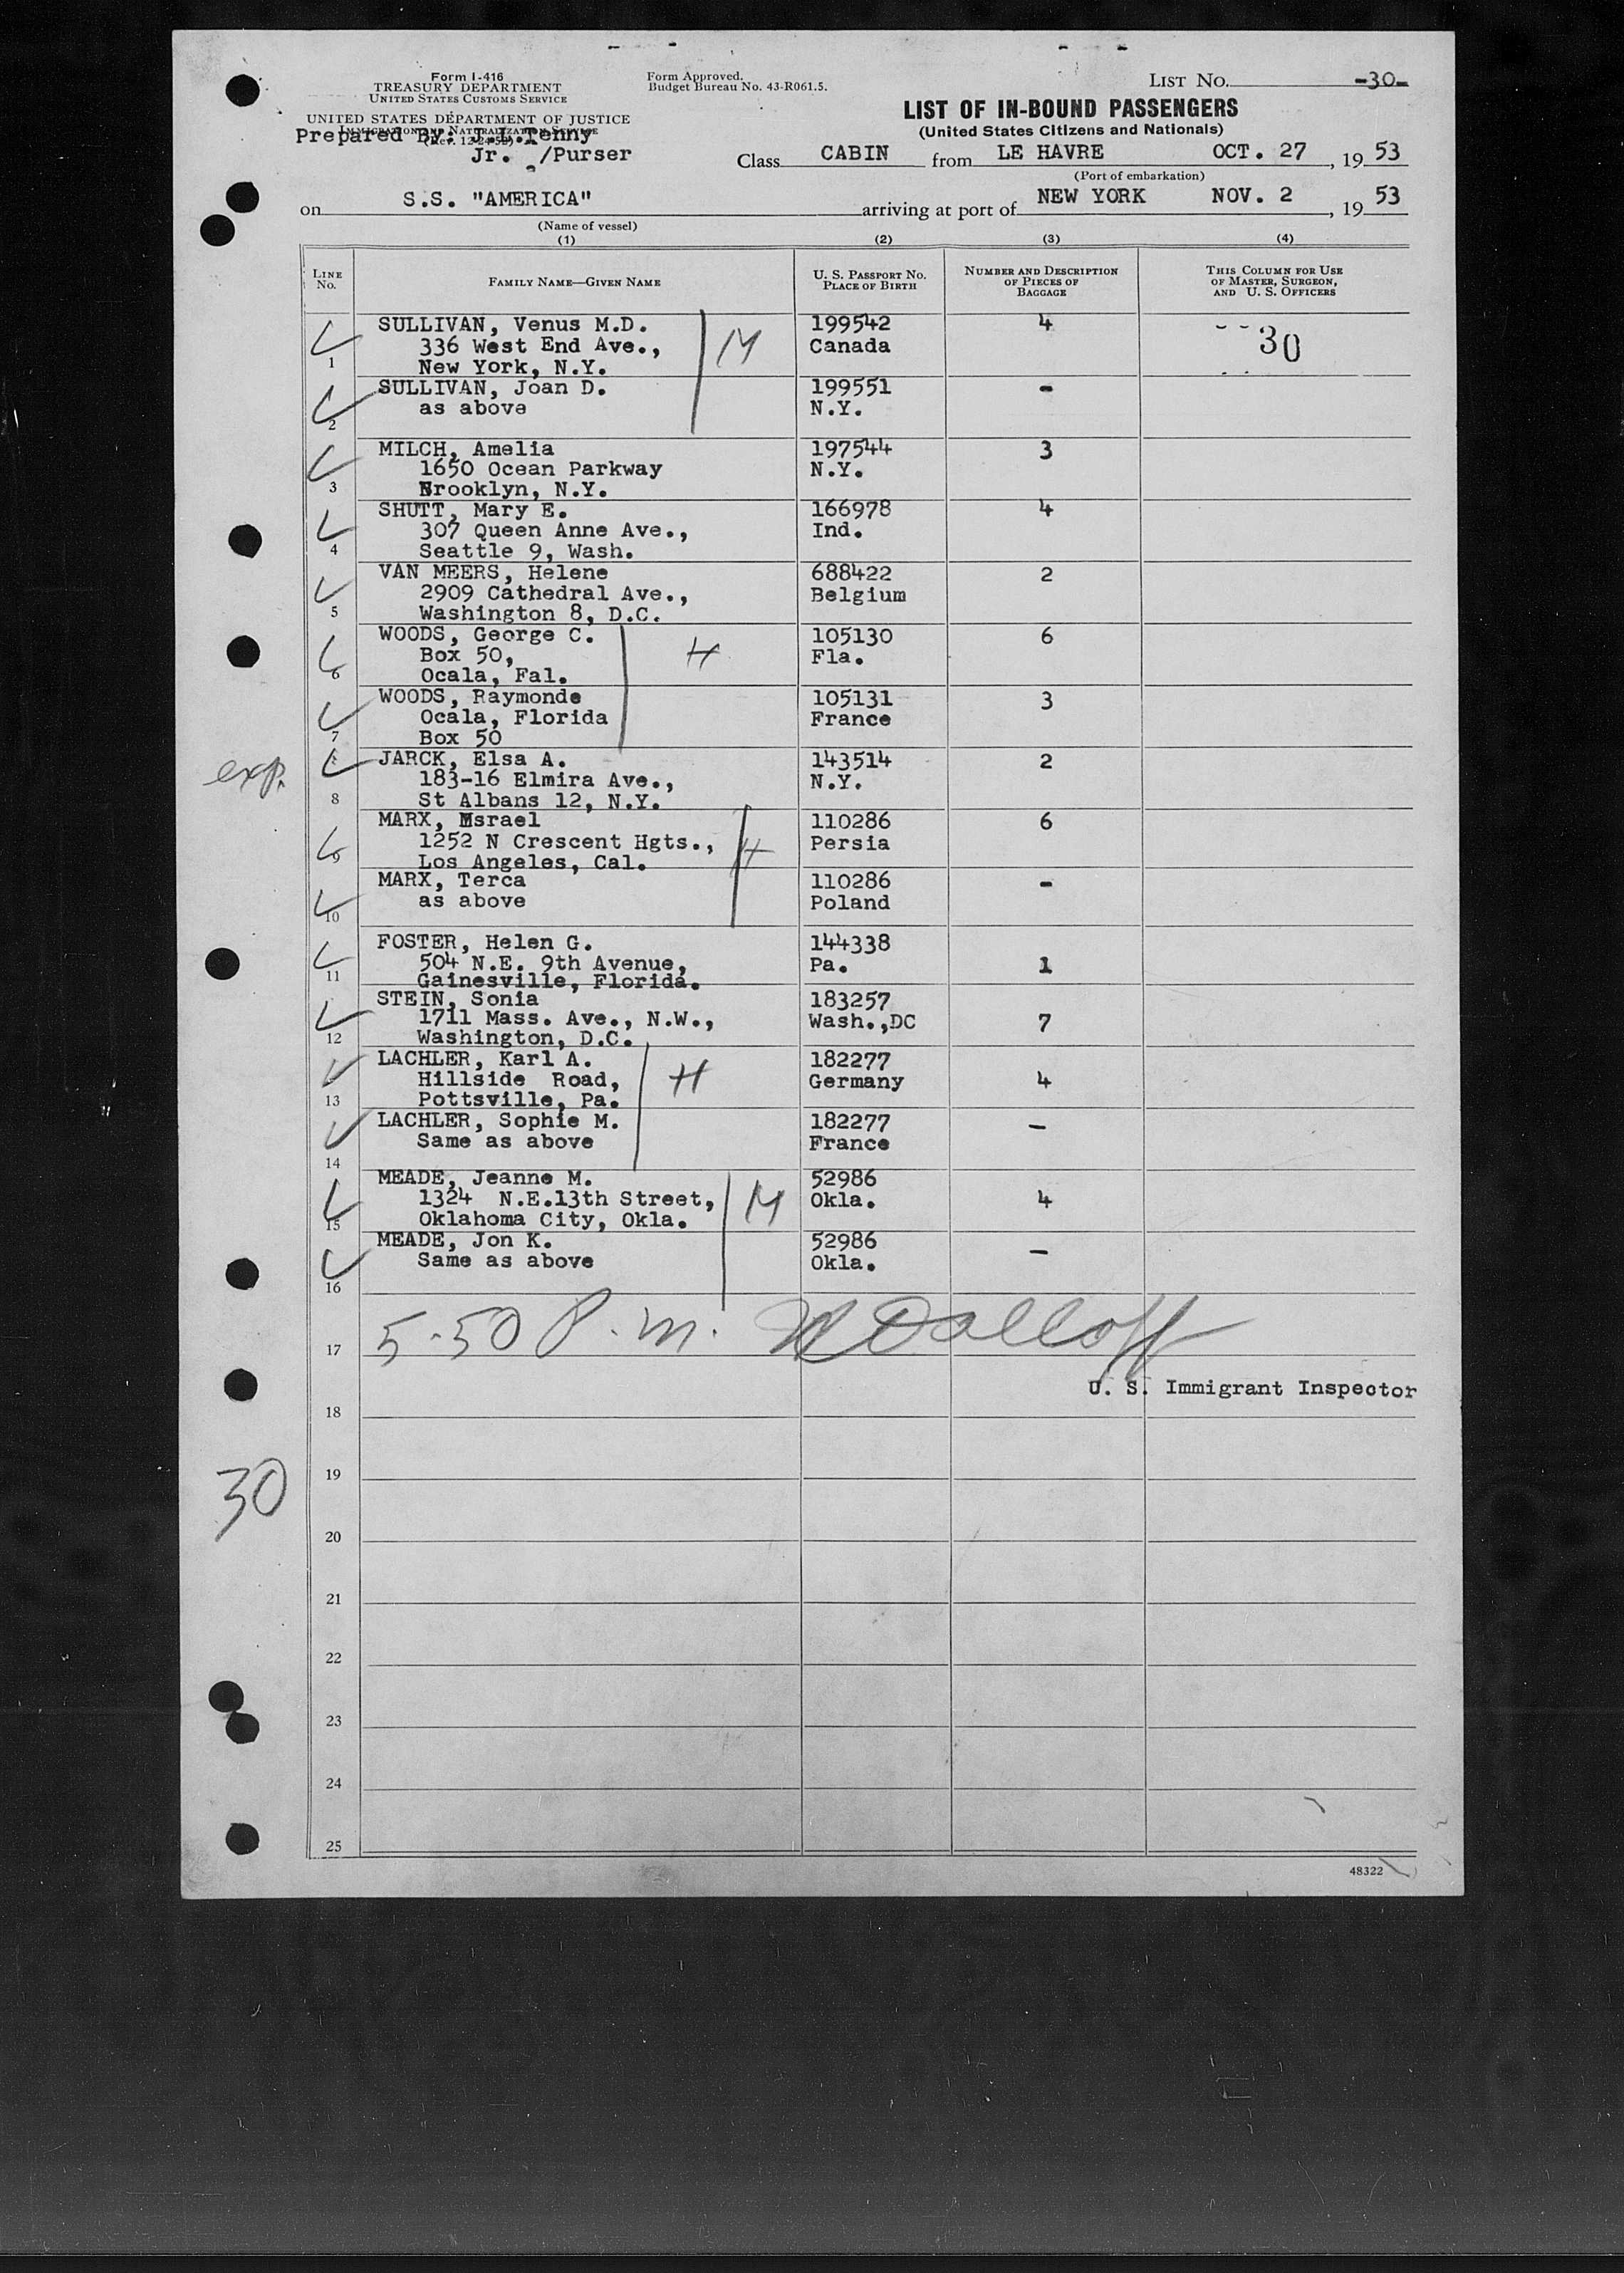 Form I-416
TREASURY DEPARTMENT
UNITED STATES CUSTOMS SERVICE
UNITED STATES DEPARTMENT OF JUSTICE
IMMIGRATION AND NATURALIZATION SERVICE
Prepared By: J.L.Tenny
Jr. /Purser
Form Approved.
Budget Bureau No. 43-R061.5.
LIST NO. -30-
LIST OF IN-BOUND PASSENGERS
(United States Citizens and Nationals)
Class CABIN from LE HAVRE OCT. 27, 19 53
(Port of embarkation)
on S.S. "AMERICA" arriving at port of NEW YORK NOV. 2, 19 53
(Name of vessel)
(1) (2) (3) (4)
LINE NO. FAMILY NAME—GIVEN NAME U. S. PASSPORT NO. PLACE OF BIRTH NUMBER AND DESCRIPTION OF PIECES OF BAGGAGE THIS COLUMN FOR USE OF MASTER, SURGEON, AND U. S. OFFICERS
SULLIVAN, Venus M.D. 199542 4
336 West End Ave., M Canada 30
1 New York, N.Y.
SULLIVAN, Joan D. 199551 -
2 as above N.Y.
MILCH, Amelia 197544 3
1650 Ocean Parkway N.Y.
3 Brooklyn, N.Y.
SHUTT, Mary E. 166978 4
307 Queen Anne Ave., Ind.
4 Seattle 9, Wash.
VAN MEERS, Helene 688422 2
2909 Cathedral Ave., Belgium
5 Washington 8, D.C.
WOODS, George C. 105130 6
Box 50, H Fla.
6 Ocala, Fal.
WOODS, Raymonde 105131 3
Ocala, Florida France
7 Box 50
exp. JARCK, Elsa A. 143514 2
183-16 Elmira Ave., N.Y.
8 St Albans 12, N.Y.
MARX, Msrael 110286 6
1252 N Crescent Hgts., H Persia
9 Los Angeles, Cal.
MARX, Terca 110286 -
10 as above Poland
FOSTER, Helen G. 144338
504 N.E. 9th Avenue, Pa. 1
11 Gainesville, Florida.
STEIN, Sonia 183257
1711 Mass. Ave., N.W., Wash.,DC 7
12 Washington, D.C.
LACHLER, Karl A. 182277
Hillside Road, H Germany 4
13 Pottsville, Pa.
LACHLER, Sophie M. 182277 -
Same as above France
14
MEADE, Jeanne M. 52986
1324 N.E.13th Street, M Okla. 4
15 Oklahoma City, Okla.
MEADE, Jon K. 52986 -
Same as above Okla.
16
17 5-50 P.m.
U. S. Immigrant Inspector
18
19
30
20
21
22
23
24
25
48322